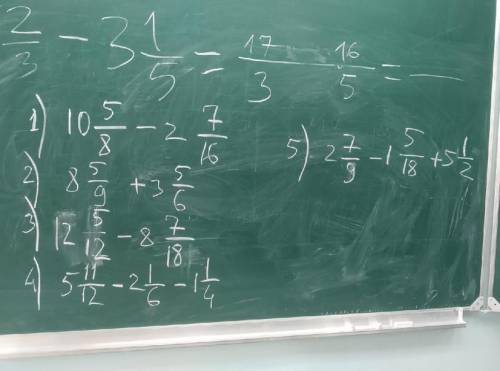 2/3 − 3 1/5 = 17/3 16/5 = —
1) 10 5/8 − 2 7/16
2) 8 5/9 + 3 5/6
3) 12 5/12 − 8 7/18
4) 5 11/12 − 2 1/6 − 1 1/4
5) 2 7/9 − 1 5/18 + 5 1/2